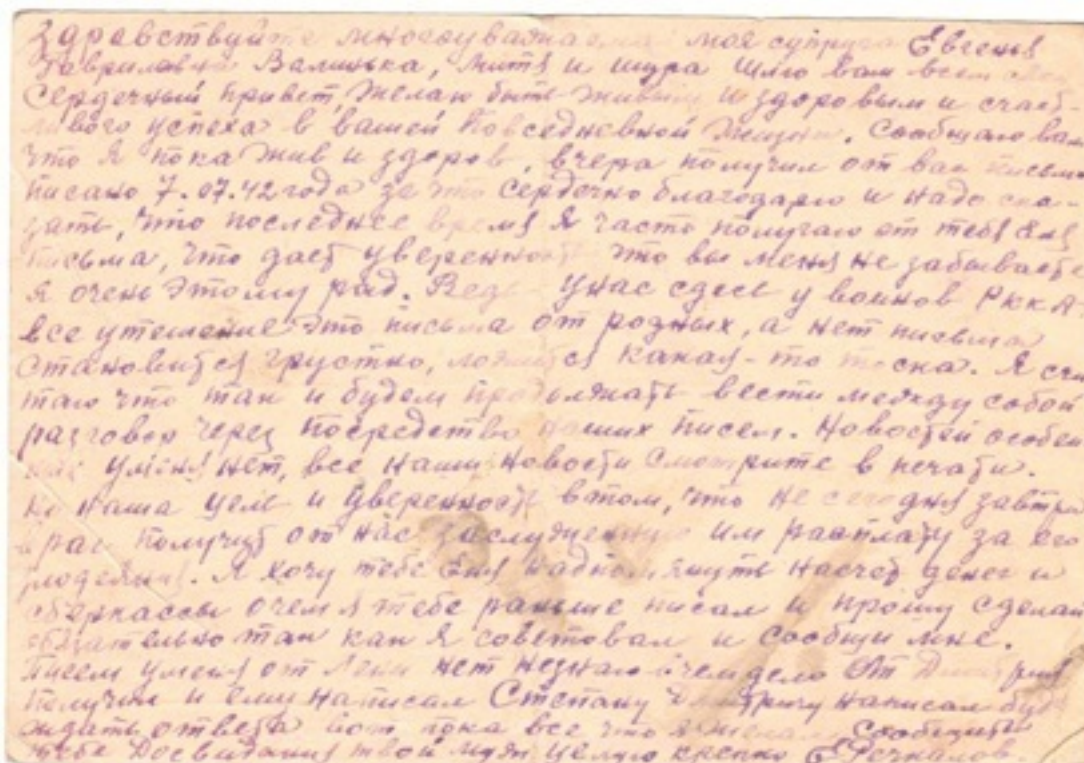 Здравствуйте многоуважаемая моя супруга Евгения
Гавриловна Валинька, Митя и Шура шлю вам всем свой
Сердечный привет, желаю быть живыми и здоровым и счаст-
ливого успеха в вашей повседневной жизни. Сообщаю вам
что я пока жив и здоров, вчера получил от вас письмо
писано 7.07.42 года за что сердечно благодарю и надо ска-
зать, что последнее время я часто получаю от тебя Еня
письма, что дает уверенность что вы меня не забываете
я очень этому рад. Ведь унас сдесь у воинов РККА
все утешение это письма от родных, а нет письма
становится грустно, ложится какая-то тоска. Я счи
таю что так и будем продолжать вести между собой
разговор через посредство наших писем. Новостей особен
ных уменя нет, все наши новости смотрите в печати.
Но наша цель и уверенность втом, что не сегодня завтра
враг получут от нас заслуженную им расплату за его
злодеяния. Я хочу тебе Еня насчет денег и
сберкассы очем я тебе раньше писал и прошу сделай
обязательно так как я советовал и сообщи мне.
писем уменя от Лени нет незнаю вчем дело От Дмитрия
получил и ему написал Степану Дмитричу написал буду
ждать ответа вот пока все что я желал сообщить
тебе Досвидания твой муж целую крепко Е Речкалов.